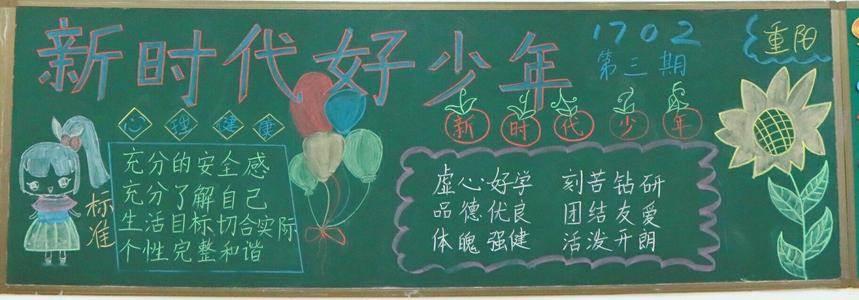 新时代好少年
1702
第三期
重阳
心理健康
标准
充分的安全感
充分了解自己
生活目标切合实际
个性完整和谐
新时代少年
虚心好学 刻苦钻研
品德优良 团结友爱
体魄强健 活泼开朗